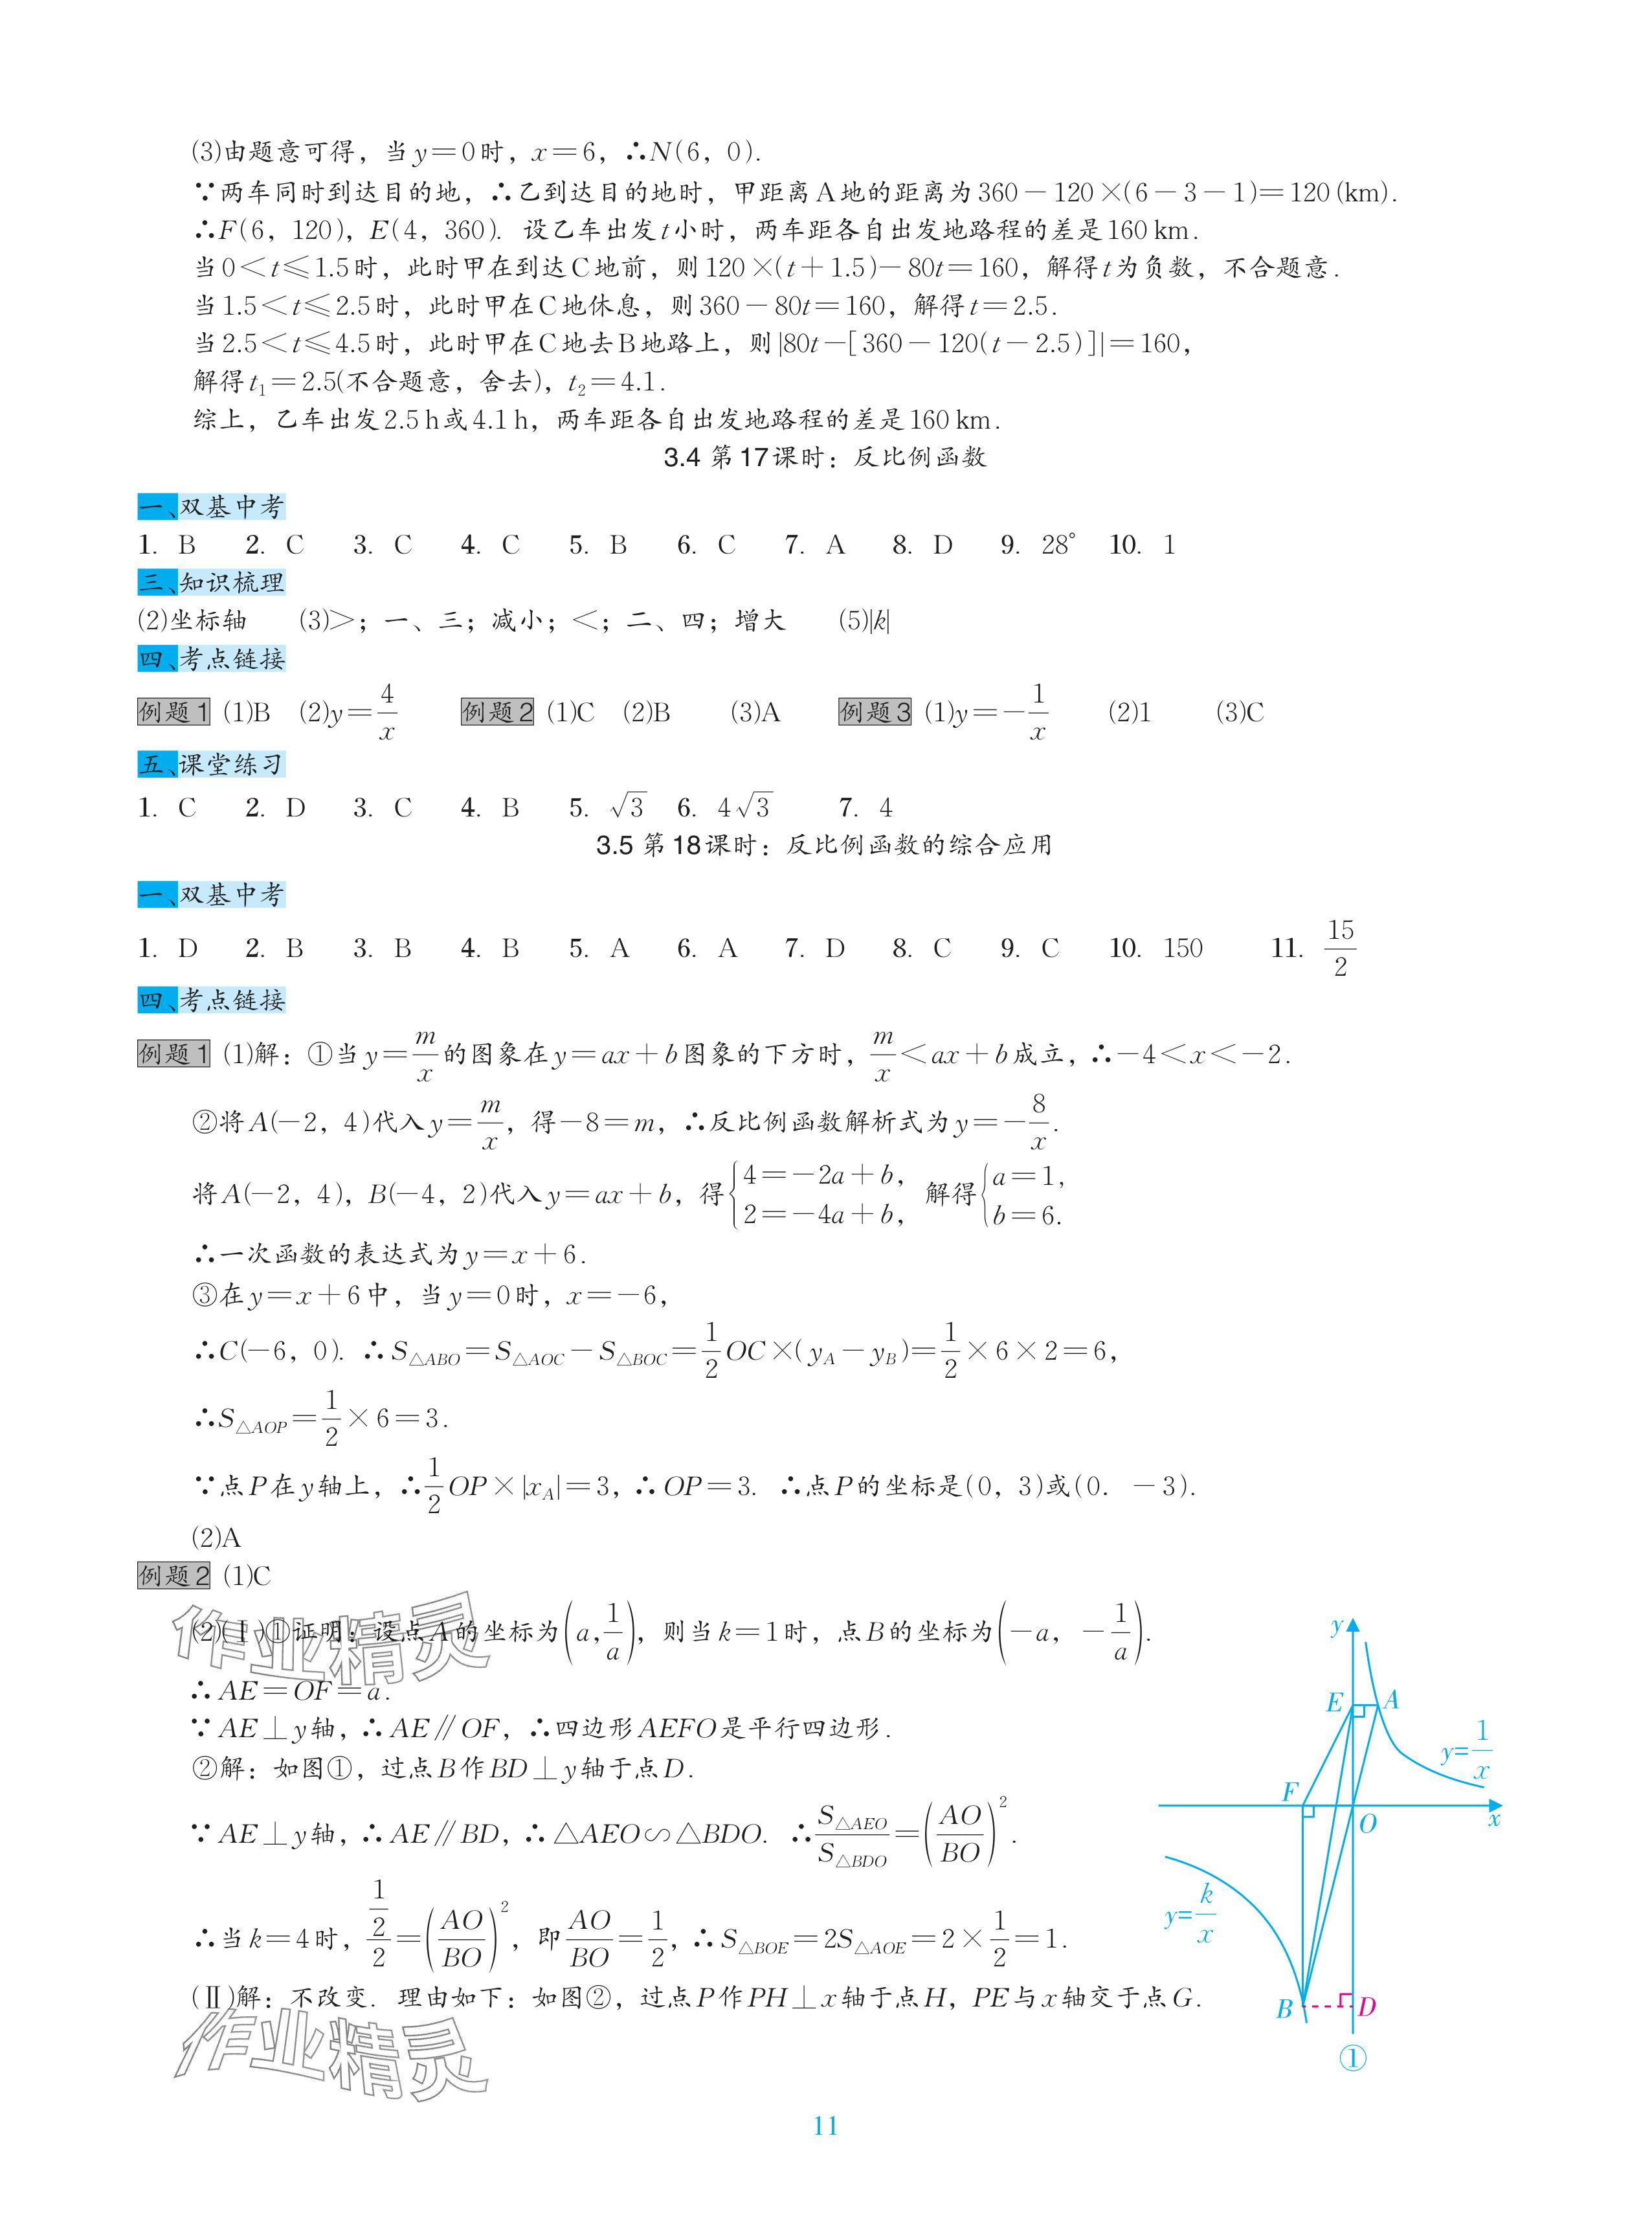 (3)由题意可得，当y＝0时，x＝6，∴N(6，0)．
∵两车同时到达目的地，∴乙到达目的地时，甲距离A地的距离为360－120×(6－3－1)＝120(km)．
∴F(6，120)，E(4，360)．设乙车出发t小时，两车距各自出发地路程的差是160 km．
当0＜t⩽1.5时，此时甲在到达C地前，则120×(t＋1.5)－80t＝160，解得t为负数，不合题意．
当1.5＜t⩽2.5时，此时甲在C地休息，则360－80t＝160，解得t＝2.5．
当2.5＜t⩽4.5时，此时甲在C地去B地路上，则|80t－[360－120(t－2.5)]|＝160，
解得t₁＝2.5(不合题意，舍去)，t₂＝4.1．
综上，乙车出发2.5 h或4.1 h，两车距各自出发地路程的差是160 km．
3.4 第17课时：反比例函数
一、双基中考
1. B 2. C 3. C 4. C 5. B 6. C 7. A 8. D 9. 28° 10. 1
三、知识梳理
(2)坐标轴 (3)＞；一、三；减小；＜；二、四；增大 (5)|k|
四、考点链接
例题1 (1)B (2)y＝4/x 例题2 (1)C (2)B (3)A 例题3 (1)y＝－1/x (2)1 (3)C
五、课堂练习
1. C 2. D 3. C 4. B 5. √3 6. 4√3 7. 4
3.5 第18课时：反比例函数的综合应用
一、双基中考
1. D 2. B 3. B 4. B 5. A 6. A 7. D 8. C 9. C 10. 150 11. 15/2
四、考点链接
例题1 (1)解：①当y＝m/x的图象在y＝ax＋b图象的下方时，m/x＜ax＋b成立，∴－4＜x＜－2．
②将A(－2，4)代入y＝m/x，得－8＝m，∴反比例函数解析式为y＝－8/x．
将A(－2，4)，B(－4，2)代入y＝ax＋b，得{4＝－2a＋b，2＝－4a＋b，解得{a＝1，b＝6．
∴一次函数的表达式为y＝x＋6．
③在y＝x＋6中，当y＝0时，x＝－6，
∴C(－6，0)．∴S△ABO＝S△AOC－S△BOC＝1/2 OC×(yA－yB)＝1/2×6×2＝6，
∴S△AOP＝1/2×6＝3．
∵点P在y轴上，∴1/2 OP×|xA|＝3，∴OP＝3．∴点P的坐标是(0，3)或(0．－3)．
(2)A
例题2 (1)C
(2)(Ⅰ)①证明：设点A的坐标为(a,1/a)，则当k＝1时，点B的坐标为(－a，－1/a)．
∴AE＝OF＝a．
∵AE⊥y轴，∴AE∥OF，∴四边形AEFO是平行四边形．
②解：如图①，过点B作BD⊥y轴于点D．
∵AE⊥y轴，∴AE∥BD，∴△AEO∽△BDO．∴S△AEO/S△BDO＝(AO/BO)²．
∴当k＝4时，(1/2)/2＝(AO/BO)²，即AO/BO＝1/2，∴S△BOE＝2S△AOE＝2×1/2＝1．
(Ⅱ)解：不改变．理由如下：如图②，过点P作PH⊥x轴于点H，PE与x轴交于点G．
y
E
A
y=1/x
F
O
x
y=k/x
B
D
①
作业精灵
作业精灵
11